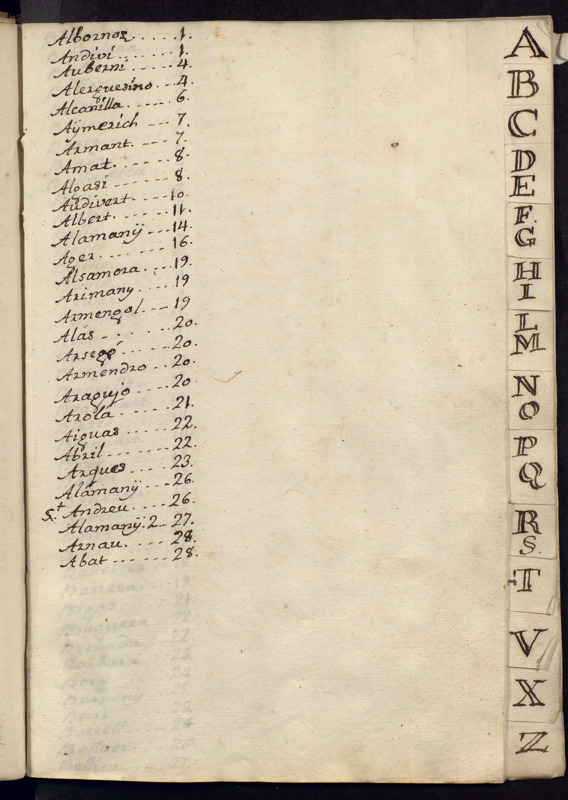 Albornoz . . . . 1.
Andivi . . . . . 1.
Auberni . . . . 4.
Alerguesino . . . 4.
Alcanilla . . . . 6.
Aÿmerich - - - 7.
Armant. - - - 7.
Amat. - - - - 8.
Algasi - - - - 8.
Audivert - - - 10.
Albert. - - - - 11.
Alamanÿ - - - 14.
Ager. - - - - 16.
Alsamora . . . . 19.
Arimany . . . . 19
Armengol. - - - 19
Alás - . . . 20.
Arsegó - - - - 20.
Armendro . . . 20.
Aragujo - - - 20
Arolá - - - - 21.
Aiguas - - - - 22.
Abril - - - - 22.
Argues . . . . 23.
Alámanÿ - - - 26.
S.t Andreu . . . . 26.
Alamanÿ. 2 - - 27.
Arnau. . . . . 28.
Abat - - - - - 28.
A
B
C
D
E
F.
G
H
I
L
M
N
O
P
Q
R
S.
T
V
X
Z